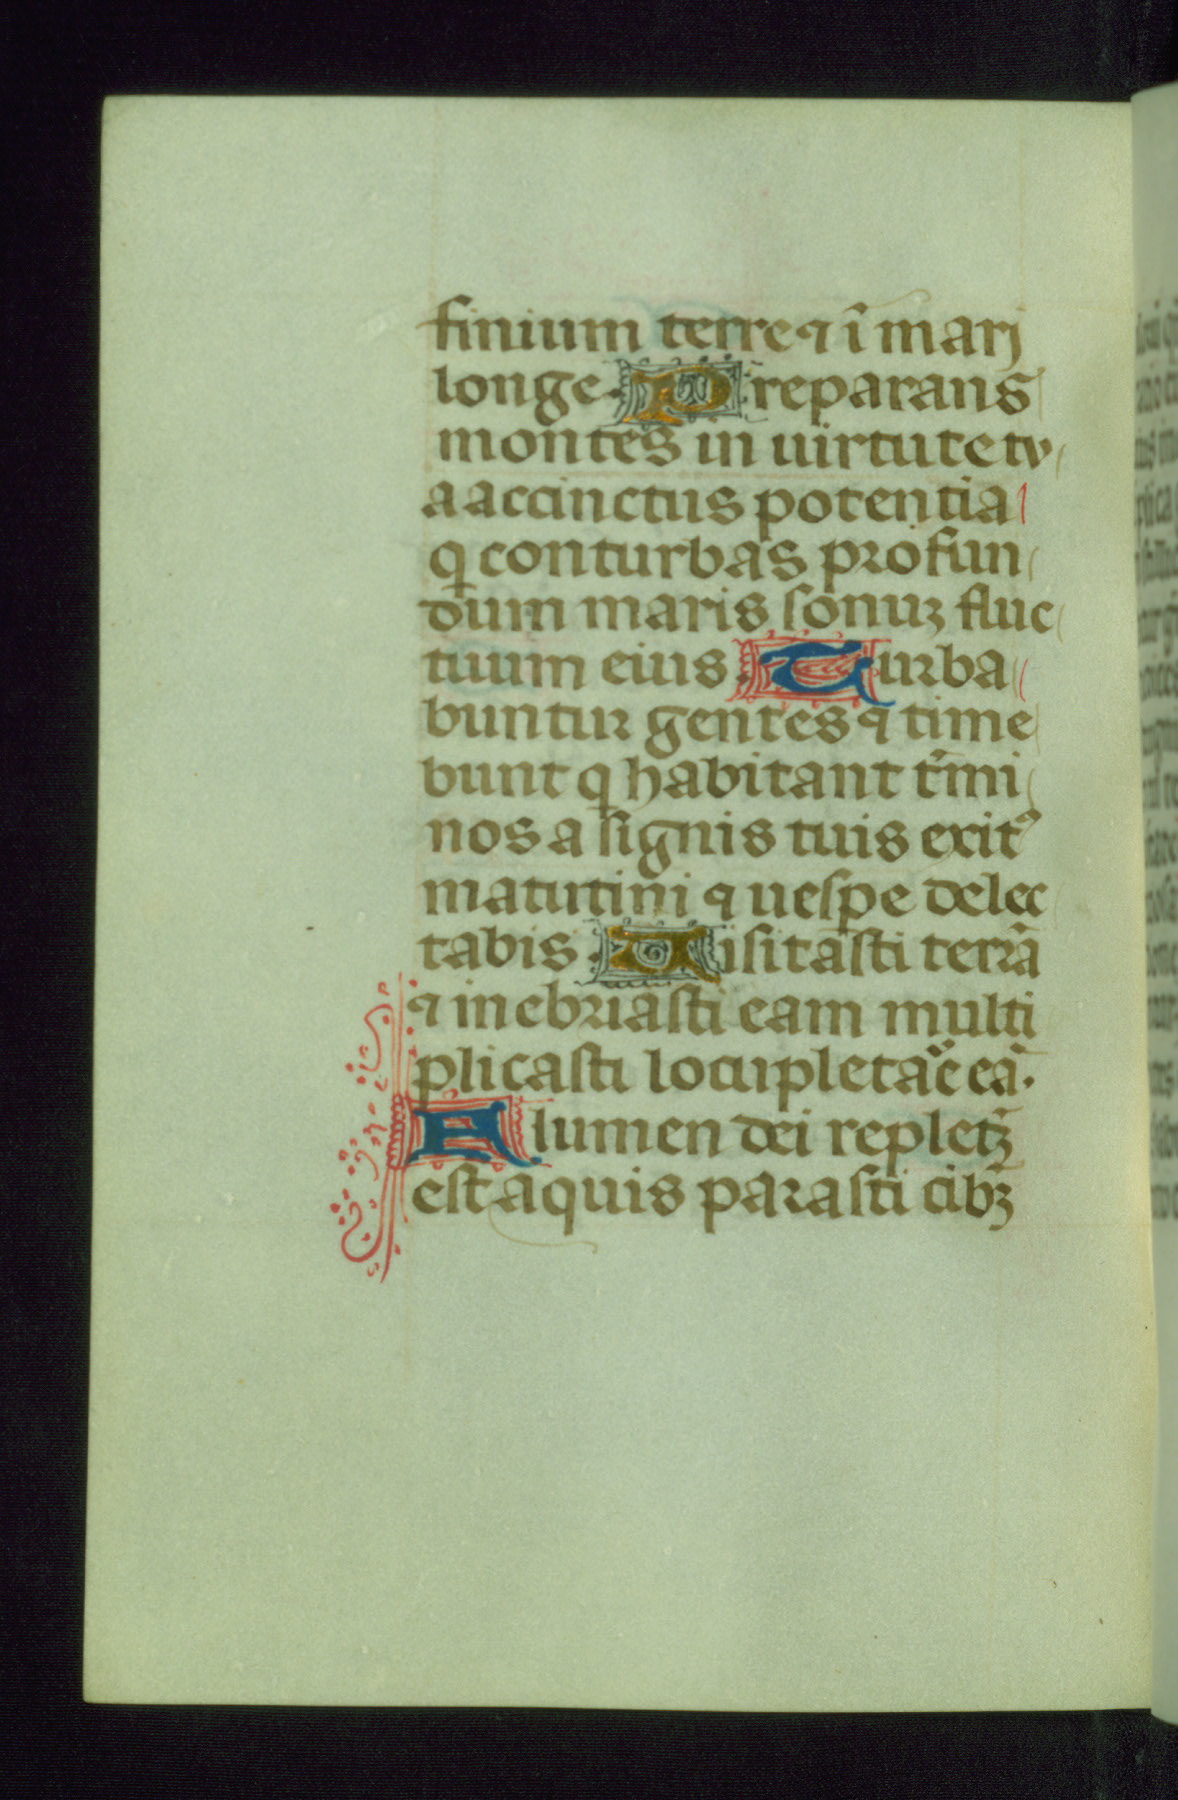 finium terre ⁊ ī mari
longe. Preparans
montes in uirtute tu
a accinctus potentia
q̱ conturbas profun
dum maris sonuꝫ fluc
tuum eius. Turba
buntur gentes ⁊ time
bunt q̱ habitant t̄mi
nos a signis tuis exitꝰ
matutini ⁊ uespe delec
tabis. Uisitasti terrā
⁊ inebriasti eam multi
plicasti locupletar̄e eā.
Flumen dei repletꝫ
est aquis parasti cibꝫ